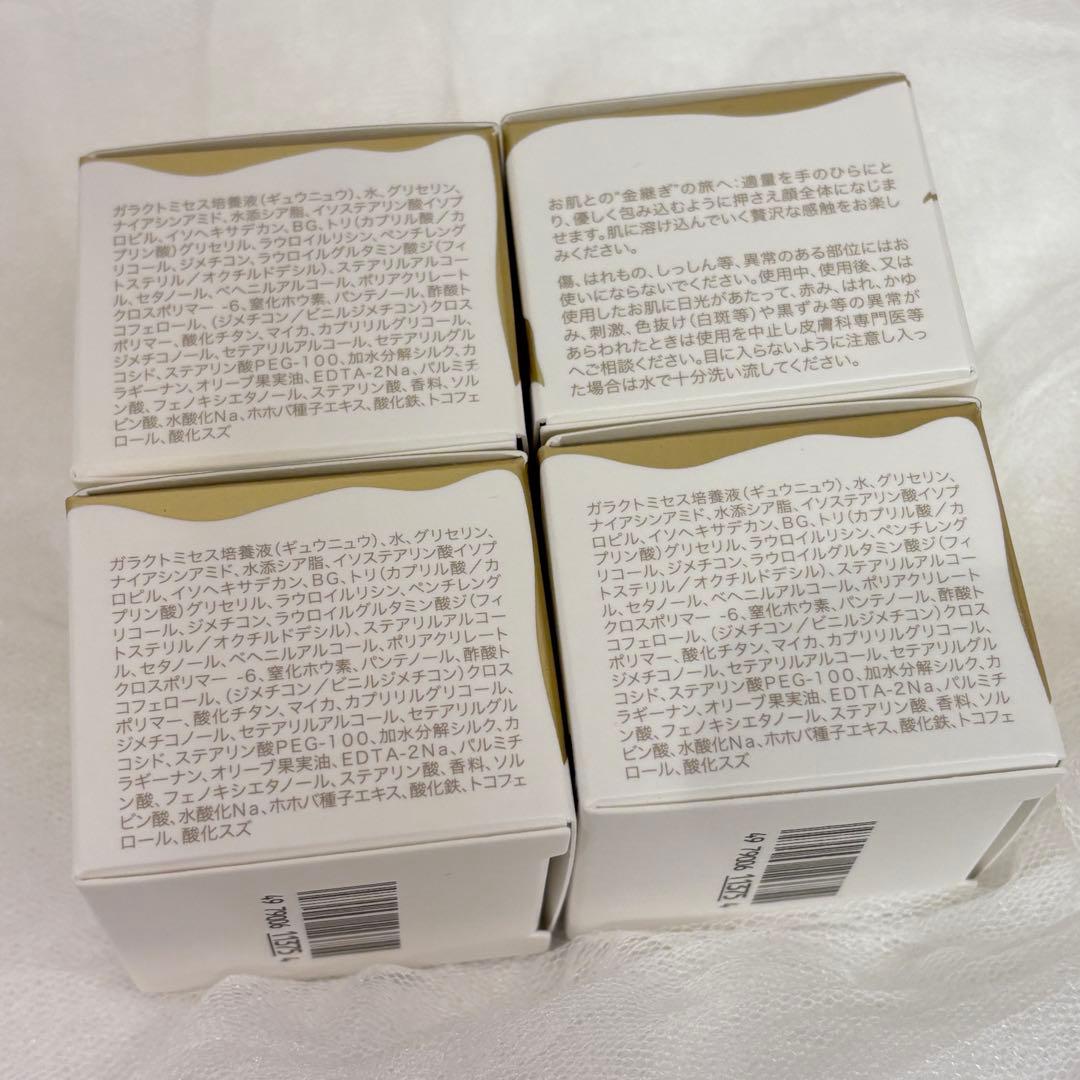 ガラクトミセス培養液(ギュウニュウ)、水、グリセリン、
ナイアシンアミド、水添シア脂、イソステアリン酸イソプ
ロピル、イソヘキサデカン、BG、トリ(カプリル酸／カ
プリン酸)グリセリル、ラウロイルリシン、ペンチレング
リコール、ジメチコン、ラウロイルグルタミン酸ジ(フィ
トステリル／オクチルドデシル)、ステアリルアルコー
ル、セタノール、ベヘニルアルコール、ポリアクリレート
クロスポリマー -6、窒化ホウ素、パンテノール、酢酸ト
コフェロール、(ジメチコン／ビニルジメチコン)クロス
ポリマー、酸化チタン、マイカ、カプリリルグリコール、
ジメチコノール、セテアリルアルコール、セテアリルグル
コシド、ステアリン酸PEG-100、加水分解シルク、カ
ラギーナン、オリーブ果実油、EDTA-2Na、パルミチ
ン酸、フェノキシエタノール、ステアリン酸、香料、ソル
ビン酸、水酸化Na、ホホバ種子エキス、酸化鉄、トコフェ
ロール、酸化スズ
お肌との“金継ぎ”の旅へ:適量を手のひらにと
り、優しく包み込むように押さえ顔全体になじま
せます。肌に溶け込んでいく贅沢な感触をお楽し
みください。
傷、はれもの、しっしん等、異常のある部位にはお
使いにならないでください。使用中、使用後、又は
使用したお肌に日光があたって、赤み、はれ、かゆ
み、刺激、色抜け(白斑等)や黒ずみ等の異常が
あらわれたときは使用を中止し皮膚科専門医等
へご相談ください。目に入らないように注意し入っ
た場合は水で十分洗い流してください。
ガラクトミセス培養液(ギュウニュウ)、水、グリセリン、
ナイアシンアミド、水添シア脂、イソステアリン酸イソプ
ロピル、イソヘキサデカン、BG、トリ(カプリル酸／カ
プリン酸)グリセリル、ラウロイルリシン、ペンチレング
リコール、ジメチコン、ラウロイルグルタミン酸ジ(フィ
トステリル／オクチルドデシル)、ステアリルアルコー
ル、セタノール、ベヘニルアルコール、ポリアクリレート
クロスポリマー -6、窒化ホウ素、パンテノール、酢酸ト
コフェロール、(ジメチコン／ビニルジメチコン)クロス
ポリマー、酸化チタン、マイカ、カプリリルグリコール、
ジメチコノール、セテアリルアルコール、セテアリルグル
コシド、ステアリン酸PEG-100、加水分解シルク、カ
ラギーナン、オリーブ果実油、EDTA-2Na、パルミチ
ン酸、フェノキシエタノール、ステアリン酸、香料、ソル
ビン酸、水酸化Na、ホホバ種子エキス、酸化鉄、トコフェ
ロール、酸化スズ
49 79006 11575 4
ガラクトミセス培養液(ギュウニュウ)、水、グリセリン、
ナイアシンアミド、水添シア脂、イソステアリン酸イソプ
ロピル、イソヘキサデカン、BG、トリ(カプリル酸／カ
プリン酸)グリセリル、ラウロイルリシン、ペンチレング
リコール、ジメチコン、ラウロイルグルタミン酸ジ(フィ
トステリル／オクチルドデシル)、ステアリルアルコー
ル、セタノール、ベヘニルアルコール、ポリアクリレート
クロスポリマー -6、窒化ホウ素、パンテノール、酢酸ト
コフェロール、(ジメチコン／ビニルジメチコン)クロス
ポリマー、酸化チタン、マイカ、カプリリルグリコール、
ジメチコノール、セテアリルアルコール、セテアリルグル
コシド、ステアリン酸PEG-100、加水分解シルク、カ
ラギーナン、オリーブ果実油、EDTA-2Na、パルミチ
ン酸、フェノキシエタノール、ステアリン酸、香料、ソル
ビン酸、水酸化Na、ホホバ種子エキス、酸化鉄、トコフェ
ロール、酸化スズ
49 79006 11575 4